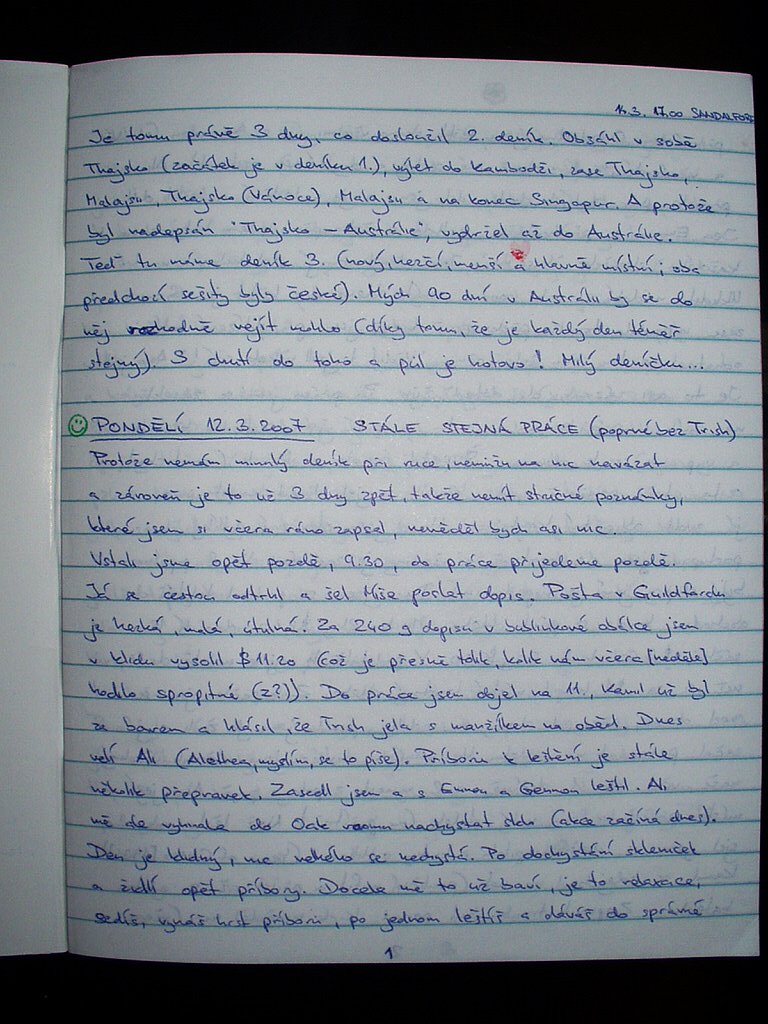 14.3. 17.00 SANDALFORD
Je tomu právě 3 dny, co dosloužil 2. deník. Obsáhl v sobě
Thajsko (začátek je v deníku 1.), výlet do Kambodži, zase Thajsko,
Malajsii, Thajsko (Vánoce), Malajsii a na konec Singapur. A protože
byl nadepsán "Thajsko – Austrálie", vydržel až do Austrálie.
Teď tu máme deník 3. (nový, hezčí, menší a hlavně místní; oba
předchozí sešity byly české). Mých 90 dní v Austrálii by se do
něj rozhodně vejít mohlo (díky tomu, že je každý den téměř
stejný). S chutí do toho a půl je hotovo! Milý deníčku...
PONDĚLÍ 12.3.2007 STÁLE STEJNÁ PRÁCE (poprvé bez Trish)
Protože nemám minulý deník při ruce, nemůžu na nic navázat
a zároveň je to už 3 dny zpět, takže nemít stručné poznámky,
které jsem si včera ráno zapsal, nevěděl bych asi nic.
Vstali jsme opět pozdě, 9.30, do práce přijedeme pozdě.
Já se cestou odtrhl a šel Míše poslat dopis. Pošta v Guildfordu
je hezká, malá, útulná. Za 240 g dopisu v bublinkové obálce jsem
v klidu vysolil $11.20 (což je přesně tolik, kolik nám včera [neděle]
hodilo spropitné (z?)). Do práce jsem dojel na 11., Kamil už byl
za barem a hlásil, že Trish jela s manžílkem na oběd. Dnes
velí Ali (Alethea, myslím, se to píše). Příborů k leštění je stále
několik přepravek. Zasedl jsem a s Emmou a Gemmou leštil. Ali
mě dle vyhnala do Oak roomu nachystat sklo (akce začíná dnes).
Den je klidný, nic velkého se nechystá. Po dochystání skleniček
a židlí opět příbory. Docela mě to už baví, je to relaxace,
sedíš, vynáš hrst příborů, po jednom leštíš a dáváš do správné
1